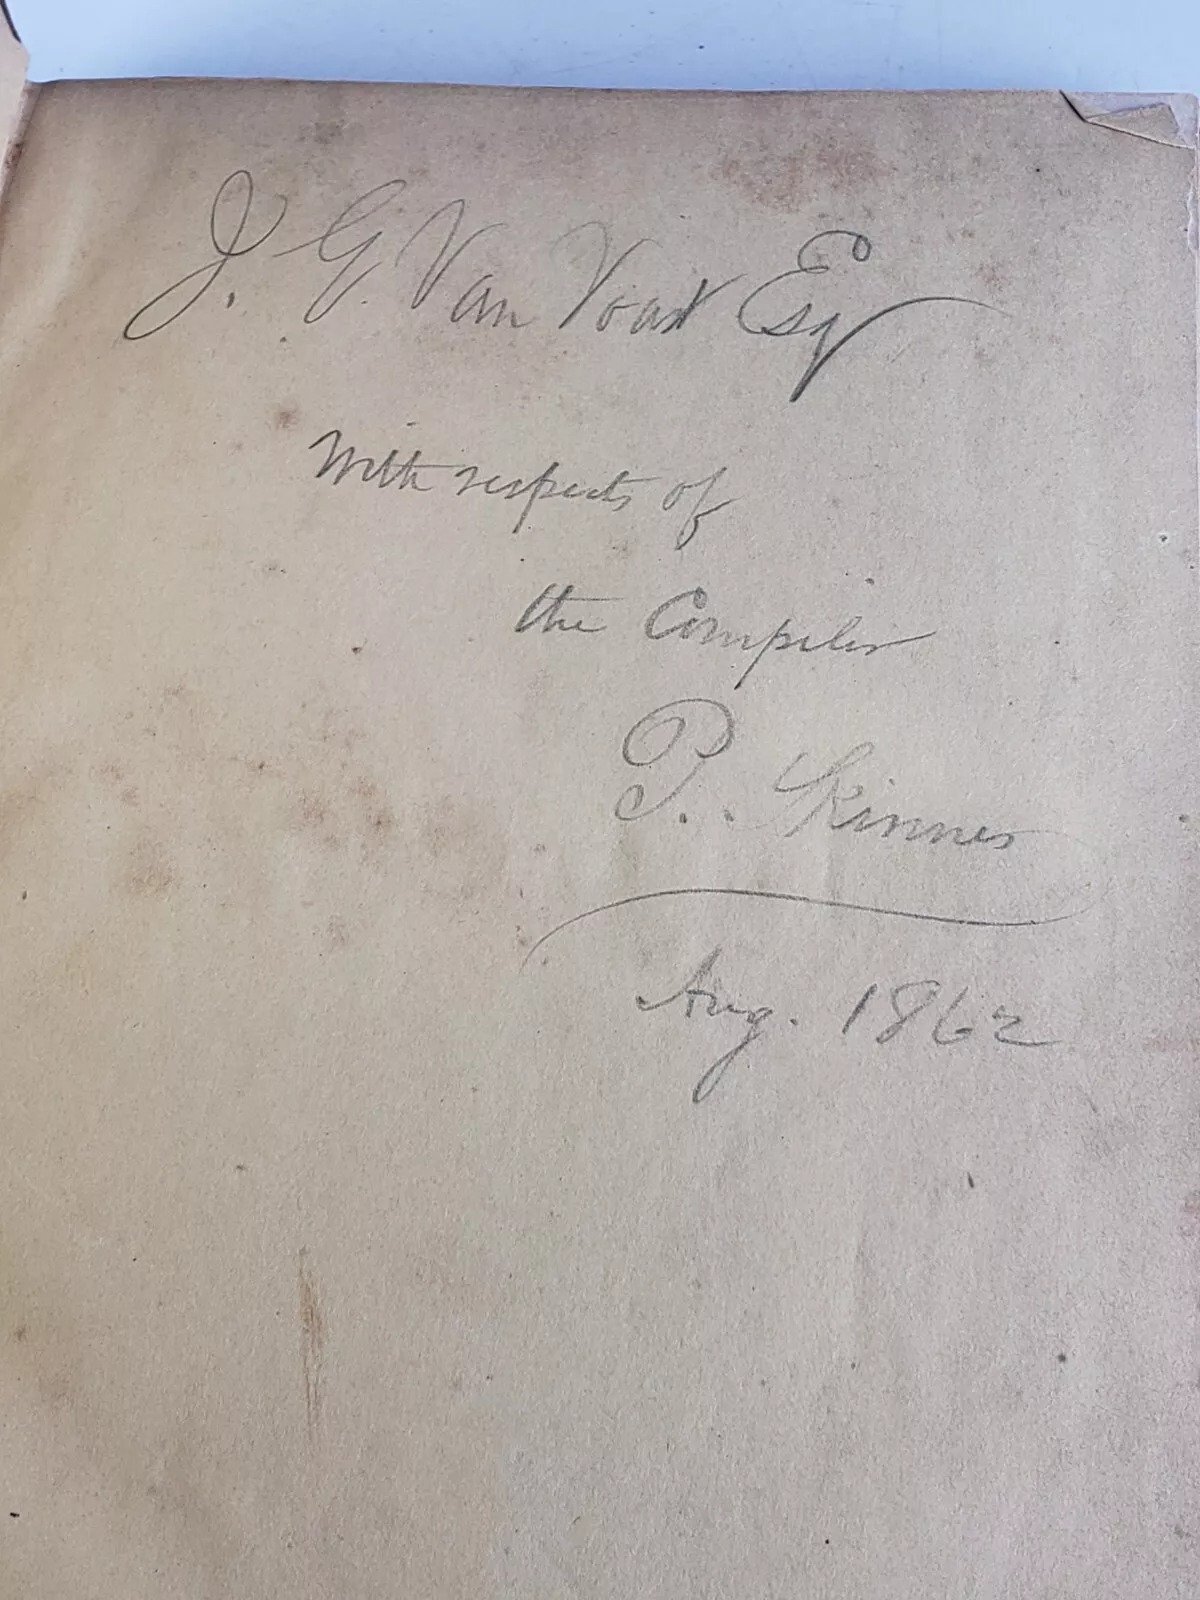 J. G. Van Voast Esq
With respects of
the Compiler
P. Skinner
Aug. 1862